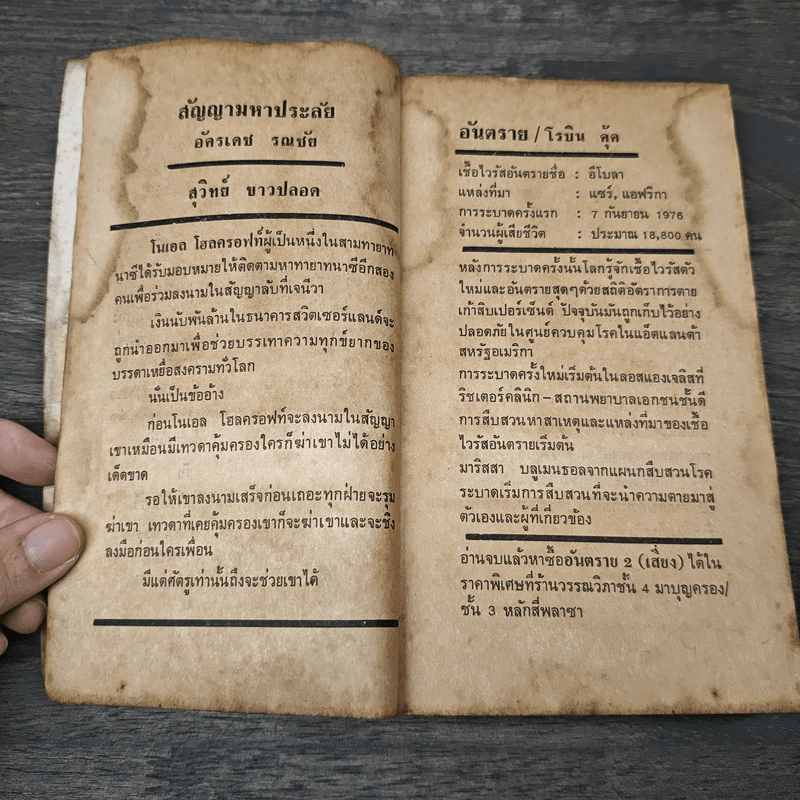 สัญญามหาประลัย
อัครเดช รณชัย
สุวิทย์ ขาวปลอด
โนเอล โฮลครอฟท์ผู้เป็นหนึ่งในสามทายาท
นาซีได้รับมอบหมายให้ติดตามหาทายาทนาซีอีกสอง
คนเพื่อร่วมลงนามในสัญญาลับที่เจนีวา
เงินนับพันล้านในธนาคารสวิตเซอร์แลนด์จะ
ถูกนำออกมาเพื่อช่วยบรรเทาความทุกข์ยากของ
บรรดาเหยื่อสงครามทั่วโลก
นั่นเป็นข้ออ้าง
ก่อนโนเอล โฮลครอฟท์จะลงนามในสัญญา
เขาเหมือนมีเทวดาคุ้มครองใครก็ฆ่าเขาไม่ได้อย่าง
เด็ดขาด
รอให้เขาลงนามเสร็จก่อนเถอะทุกฝ่ายจะรุม
ฆ่าเขา เทวดาที่เคยคุ้มครองเขาก็จะฆ่าเขาและจะชิง
ลงมือก่อนใครเพื่อน
มีแต่ศัตรูเท่านั้นถึงจะช่วยเขาได้
อันตราย / โรบิน คุ้ค
เชื้อไวรัสอันตรายชื่อ : อีโบลา
แหล่งที่มา : แซร์, แอฟริกา
การระบาดครั้งแรก : 7 กันยายน 1976
จำนวนผู้เสียชีวิต : ประมาณ 18,800 คน
หลังการระบาดครั้งนั้นโลกรู้จักเชื้อไวรัสตัว
ใหม่และอันตรายสุดๆด้วยสถิติอัตราการตาย
เก้าสิบเปอร์เซ็นต์ ปัจจุบันมันถูกเก็บไว้อย่าง
ปลอดภัยในศูนย์ควบคุมโรคในแอ็ตแลนต้า
สหรัฐอเมริกา
การระบาดครั้งใหม่เริ่มต้นในลอสแองเจลิสที่
ริชเตอร์คลินิก – สถานพยาบาลเอกชนชั้นดี
การสืบสวนหาสาเหตุและแหล่งที่มาของเชื้อ
ไวรัสอันตรายเริ่มต้น
มาริสสา บลูเมนธอลจากแผนกสืบสวนโรค
ระบาดเริ่มการสืบสวนที่จะนำความตายมาสู่
ตัวเองและผู้ที่เกี่ยวข้อง
อ่านจบแล้วหาซื้ออันตราย 2 (เสี่ยง) ได้ใน
ราคาพิเศษที่ร้านวรรณวิภาชั้น 4 มาบุญครอง/
ชั้น 3 หลักสี่พลาซา